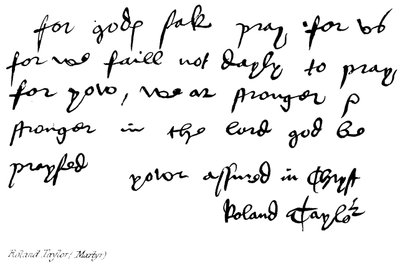 for gods sake pray for us
for we faill not dayly to pray
for yow, we ar stronger &
stronger in the lord god be
praysed yowr assured in Chryst
Roland Taylor
Roland Taylor (Martyr)